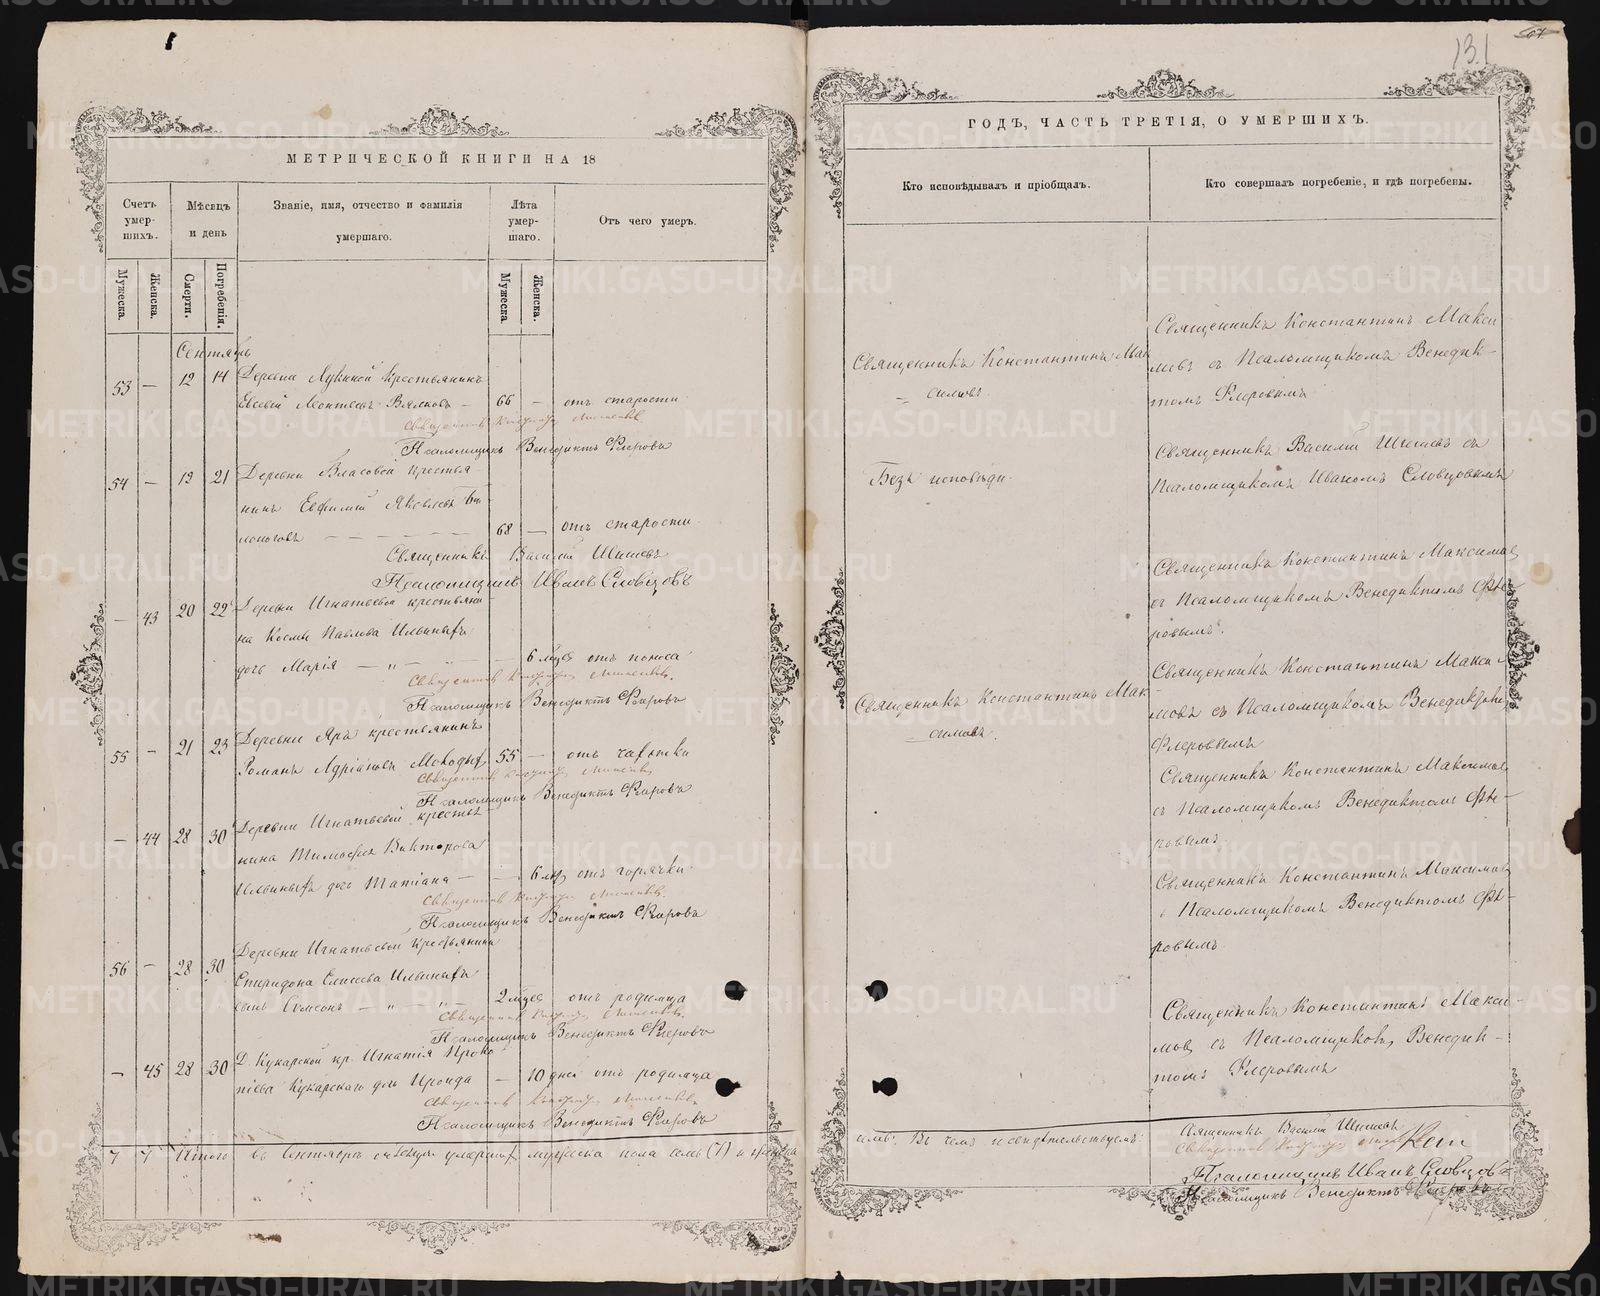 131
МЕТРИЧЕСКОЙ КНИГИ НА 18
Счетъ умер- шихъ.
Мѣсяцъ и день
Званіе, имя, отчество и фамилія умершаго.
Лѣта умер- шаго.
Отъ чего умеръ.
Мужеска.
Женска.
Смерти.
Погребенія.
Мужеска
Женска.
Сентябрь
53 — 12 14 Деревни Лукиной крестьянинъ
Евсевій Леонтьевъ — 66 — отъ старости
Священникъ
Псаломщикъ Венедиктъ Флеровъ
54 — 19 21 Деревни Власовой крестья-
нинъ Евфимій Яковлевъ Бѣ-
лоноговъ — 68 — отъ старости
Священникъ Василій Шишевъ
Псаломщикъ Иванъ Словцовъ
— 43 20 22 Деревни Игнатьевой крестьяни
на Космы Павлова Ильиныхъ
дочь Марія — „ — „ — 6 мцев отъ поноса
Священникъ
Псаломщикъ Венедиктъ Флеровъ
55 — 21 23 Деревни Яръ крестьянинъ
Романъ Адріановъ 55 — отъ чахотки
Священникъ
Псаломщикъ Венедиктъ Флеровъ
— 44 28 30 Деревни Игнатьевой крестья
нина Тимофея Викторова
Ильиныхъ дочь Татіана — 6 отъ горячки
Священникъ
Псаломщикъ Венедиктъ Флеровъ
56 — 28 30 Деревни Игнатьевой крестьянина
Спиридона Елисеева Ильиныхъ
сынъ Симеонъ — „ — „ — 2 мцев отъ родимца
Священникъ
Псаломщикъ Венедиктъ Флеровъ
— 45 28 30 Д. Кукарской кр. Игнатія Проко
піева Кукарскаго дочь Ираида — 10 дней отъ родимца
Священникъ
Псаломщикъ Венедиктъ Флеровъ
7 Итого въ Сентябрѣ умершихъ мужеска пола семь (7) и женска
ГОДЪ, ЧАСТЬ ТРЕТІЯ, О УМЕРШИХЪ.
Кто исповѣдывалъ и пріобщалъ.
Кто совершалъ погребеніе, и гдѣ погребены.
Священникъ Константинъ Мак
симовъ
Священникъ Константинъ Макси-
мовъ съ Псаломщикомъ Венедик-
томъ Флеровымъ
Безъ исповѣди.
Священникъ Василій Шишевъ съ
Псаломщикомъ Иваномъ Словцовымъ
Священникъ Константинъ Максимовъ
съ Псаломщикомъ Венедиктомъ Фле-
ровымъ.
Священникъ Константинъ Мак
симовъ.
Священникъ Константинъ Макси-
мовъ съ Псаломщикомъ Венедиктомъ
Флеровымъ
Священникъ Константинъ Максимовъ
съ Псаломщикомъ Венедиктомъ Фле-
ровымъ
Священникъ Константинъ Максимовъ
съ Псаломщикомъ Венедиктомъ Фле-
ровымъ.
Священникъ Константинъ Макси-
мовъ съ Псаломщикомъ Венедик-
томъ Флеровымъ
Въ чемъ и свидѣтельствуемъ:
Священникъ Василій Шишевъ
Священникъ
Псаломщикъ Иванъ Словцовъ
Псаломщикъ Венедиктъ Флеровъ
METRIKI.GASO-URAL.RU